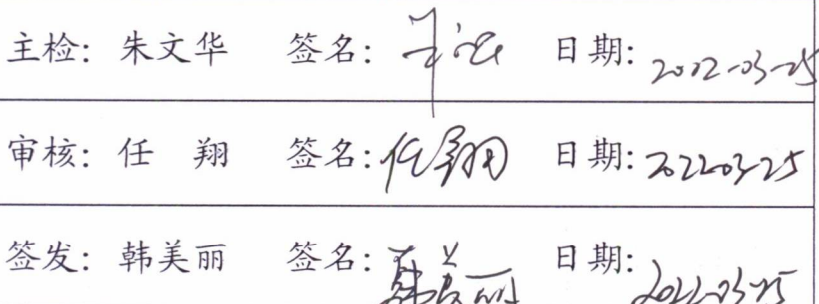 主检：朱文华 签名： 日期：2022-03-25
审核：任 翔 签名：任翔 日期：2022-03-25
签发：韩美丽 签名：韩美丽 日期：2022-03-25